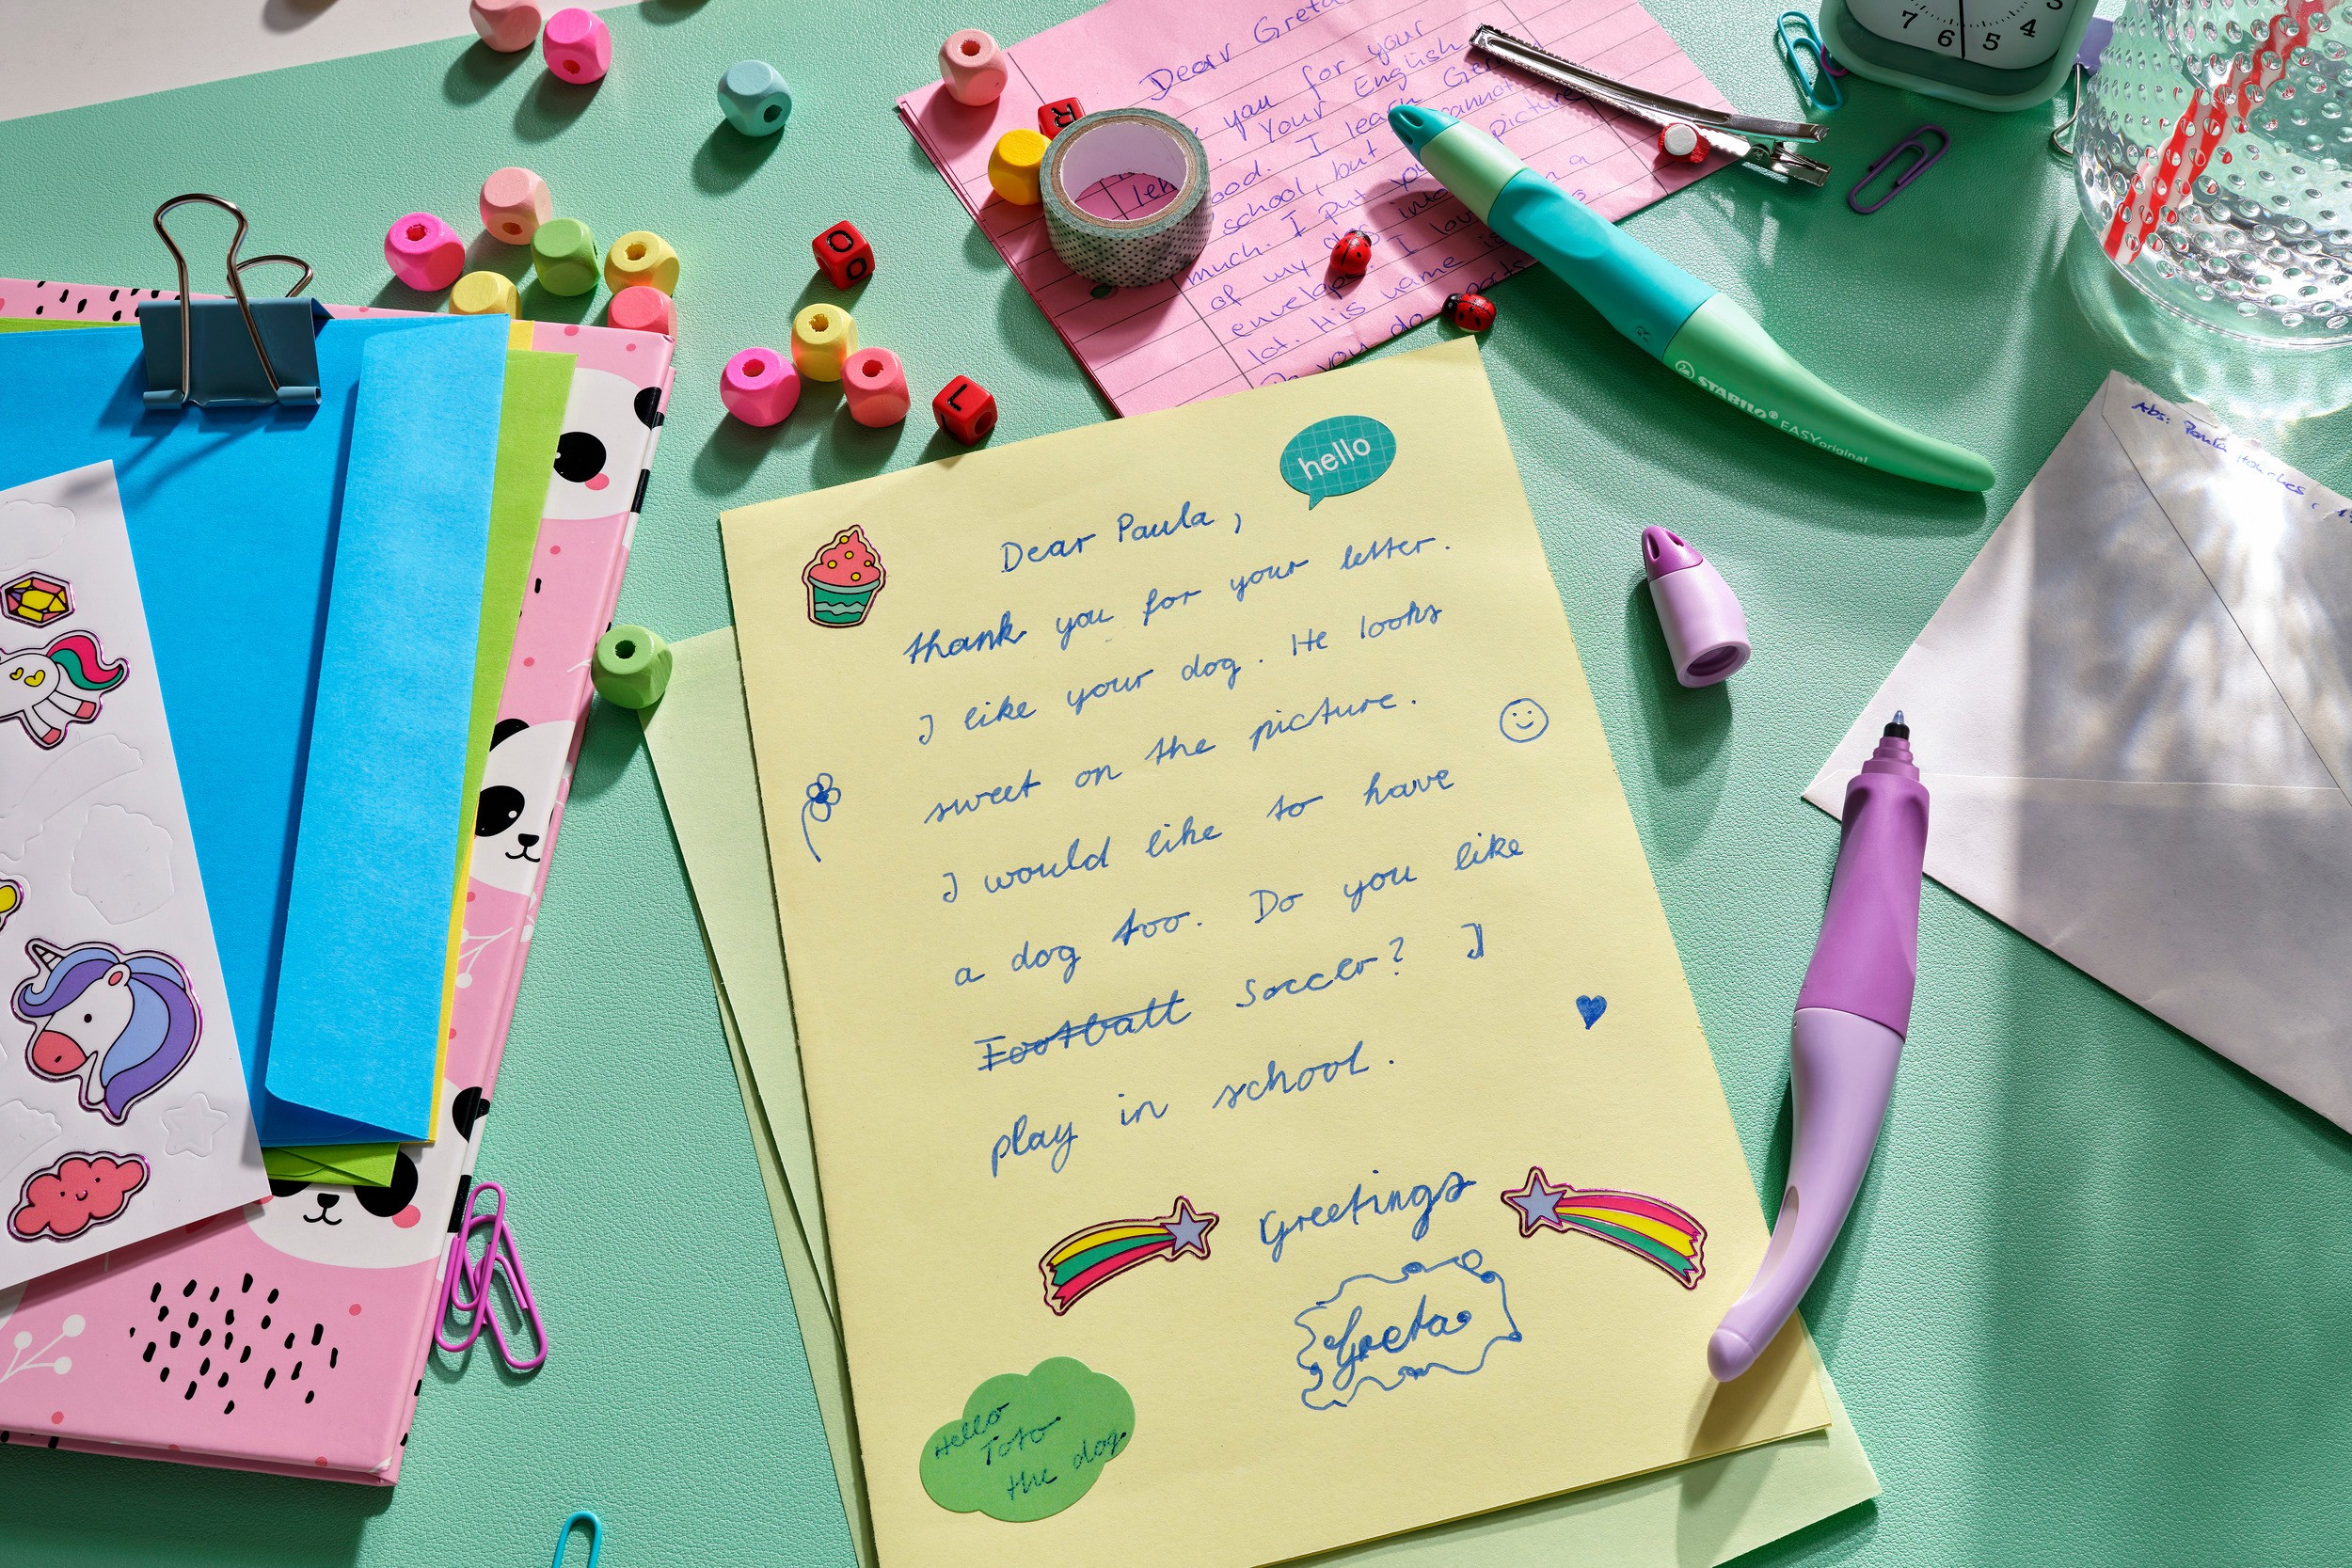 7 6 5 4 3
Dear Greta
you for your
Your English
ood. I lea Ger
school, but cannot
much. I put you picture
of my dog into a
envelope. I lov
lot. His name is
you do
R
O
O
L
R
STABILO® EASYoriginal
Abs: Paula
hello
Dear Paula,
thank you for your letter.
I like your dog. He looks
sweet on the picture.
I would like to have
a dog too. Do you like
Football Soccer? I
play in school.
Greetings
Greta
Hello
Toto
the dog